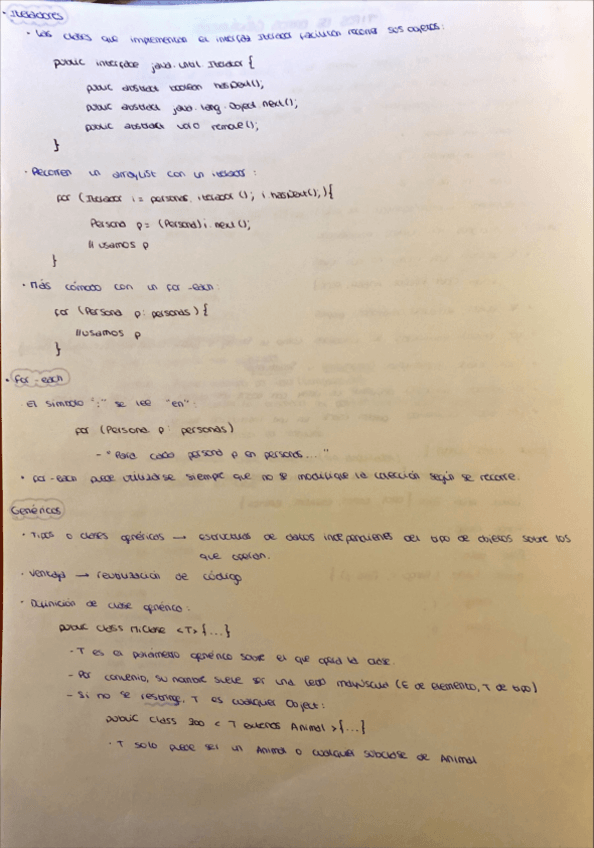 · Iteradores
· Las clases que implementan el interfaz Iterador facilitan recorrer sus objetos:
public interface java.util.Iterador {
public abstract boolean hasNext();
public abstract java.lang.Object next();
public abstract void remove();
}
· Recorren un arrayList con un iterador:
for (Iterador i = personas.iterador(); i.hasNext();){
Persona p = (Persona) i.next();
// usamos p
}
· Más cómodo con un for-each:
for (Persona p: personas) {
//usamos p
}
· For-each
El símbolo ":" se lee "en":
for (Persona p: personas)
- "Para cada persona p en personas..."
· for-each puede utilizarse siempre que no se modifique la colección según se recorre.
Genéricos
· Tipos o clases genéricos → estructuras de datos independientes del tipo de objetos sobre los
que operan.
· Ventaja → reutilización de código
· Definición de clase genérica:
public class MiClase <T> {...}
- T es el parámetro genérico sobre el que opera la clase.
- Por convenio, su nombre suele ser una letra mayúscula (E de elemento, T de tipo)
- Si no se restringe, T es cualquier Object:
public class Zoo < T extends Animal > {...}
· T solo puede ser un Animal o cualquier subclase de Animal